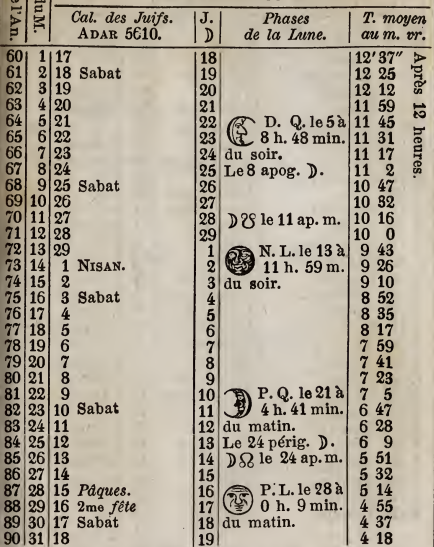 de l'An. du M. Cal. des Juifs. J. Phases T. moyen
ADAR 5610. ☽ de la Lune. au m. vr.
60 1 17 18 12'37"
61 2 18 Sabat 19 12 25
62 3 19 20 12 12
63 4 20 21 11 59
64 5 21 22 D. Q. le 5 à 11 45
65 6 22 23 8 h. 48 min. 11 31
66 7 23 24 du soir. 11 17
67 8 24 25 Le 8 apog. ☽. 11 2
68 9 25 Sabat 26 10 47
69 10 26 27 10 32
70 11 27 28 ☽☋ le 11 ap. m. 10 16
71 12 28 29 10 0
72 13 29 1 N. L. le 13 à 9 43
73 14 1 NISAN. 2 11 h. 59 m. 9 26
74 15 2 3 du soir. 9 10
75 16 3 Sabat 4 8 52
76 17 4 5 8 35
77 18 5 6 8 17
78 19 6 7 7 59
79 20 7 8 7 41
80 21 8 9 7 23
81 22 9 10 P. Q. le 21 à 7 5
82 23 10 Sabat 11 4 h. 41 min. 6 47
83 24 11 12 du matin. 6 28
84 25 12 13 Le 24 périg. ☽. 6 9
85 26 13 14 ☽☊ le 24 ap. m. 5 51
86 27 14 15 5 32
87 28 15 Pâques. 16 P. L. le 28 à 5 14
88 29 16 2me fête 17 0 h. 9 min. 4 55
89 30 17 Sabat 18 du matin. 4 37
90 31 18 19 4 18
Après 12 heures.